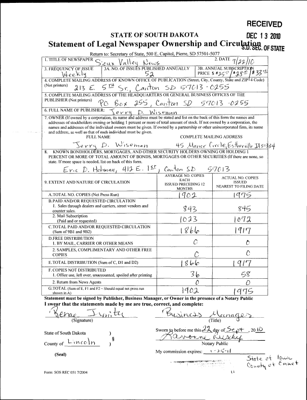 RECEIVED
DEC 13 2010
S.D. SEC. OF STATE
STATE OF SOUTH DAKOTA
Statement of Legal Newspaper Ownership and Circulation
Return to: Secretary of State, 500 E. Capitol, Pierre, SD 57501-5077
1. TITLE OF NEWSPAPER Sioux Valley News
2. DATE 9/22/10
3. FREQUENCY OF ISSUE Weekly
3A. NO. OF ISSUES PUBLISHED ANNUALLY 52
3B. ANNUAL SUBSCRIPTION PRICE
4. COMPLETE MAILING ADDRESS OF KNOWN OFFICE OF PUBLICATION (Street, City, County, State and ZIP+4 Code)
(Not printers) 213 E. 5th St, Canton SD 57013-0255
5. COMPLETE MAILING ADDRESS OF THE HEADQUARTERS OF GENERAL BUSINESS OFFICES OF THE
PUBLISHER (Not printers) PO Box 255, Canton SD 57013-0255
6. FULL NAME OF PUBLISHER: Jerry D. Wiseman
7. OWNER (If owned by a corporation, its name and address must be stated and list on the back of this form the names and
addresses of stockholders owning or holding 1 percent or more of total amount of stock. If not owned by a corporation, the
names and addresses of the individual owners must be given. If owned by a partnership or other unincorporated firm, its name
and address, as well as that of each individual must be given.
FULL NAME
COMPLETE MAILING ADDRESS
Jerry D. Wiseman
8. KNOWN BONDHOLDERS, MORTGAGEES, AND OTHER SECURITY HOLDERS OWNING OR HOLDING 1
PERCENT OR MORE OF TOTAL AMOUNT OF BONDS, MORTGAGES OR OTHER SECURITIES (If there are none, so
state. If more space is needed, list on back of this form.
Canton SD 57013
9. EXTENT AND NATURE OF CIRCULATION
AVERAGE NO. COPIES EACH ISSUED PRECEDING 12 MONTHS
ACTUAL NO. COPIES ISSUED NEAREST TO FILING DATE
A. TOTAL NO. COPIES (Net Press Run) 1902 1975
B. PAID AND/OR REQUESTED CIRCULATION
1. Sales through dealers and carriers, street vendors and
counter sales. 843 845
2. Mail Subscription
(Paid and or requested) 1023 1072
C. TOTAL PAID AND/OR REQUESTED CIRCULATION
(Sum of 9B1 and 9B2) 1866 1917
D. FREE DISTRIBUTION
1. BY MAIL, CARRIER OR OTHER MEANS 0 0
2. SAMPLES, COMPLIMENTARY AND OTHER FREE
COPIES 0 0
E. TOTAL DISTRIBUTION (Sum of C, D1 and D2) 1866 1917
F. COPIES NOT DISTRIBUTED
1. Office use, left over, unaccounted, spoiled after printing 36 58
2. Return from News Agents 0 0
1902 1975
Statement must be signed by Publisher, Business Manager, or Owner in the presence of a Notary Public
I swear that the statements made by me are true, correct, and complete:
Business Manager
(Signature) (Title)
State of South Dakota )
County of Lincoln )
§
Sworn to before me this 22 day of Sept 2010
Notary Public
(Seal)
My commission expires